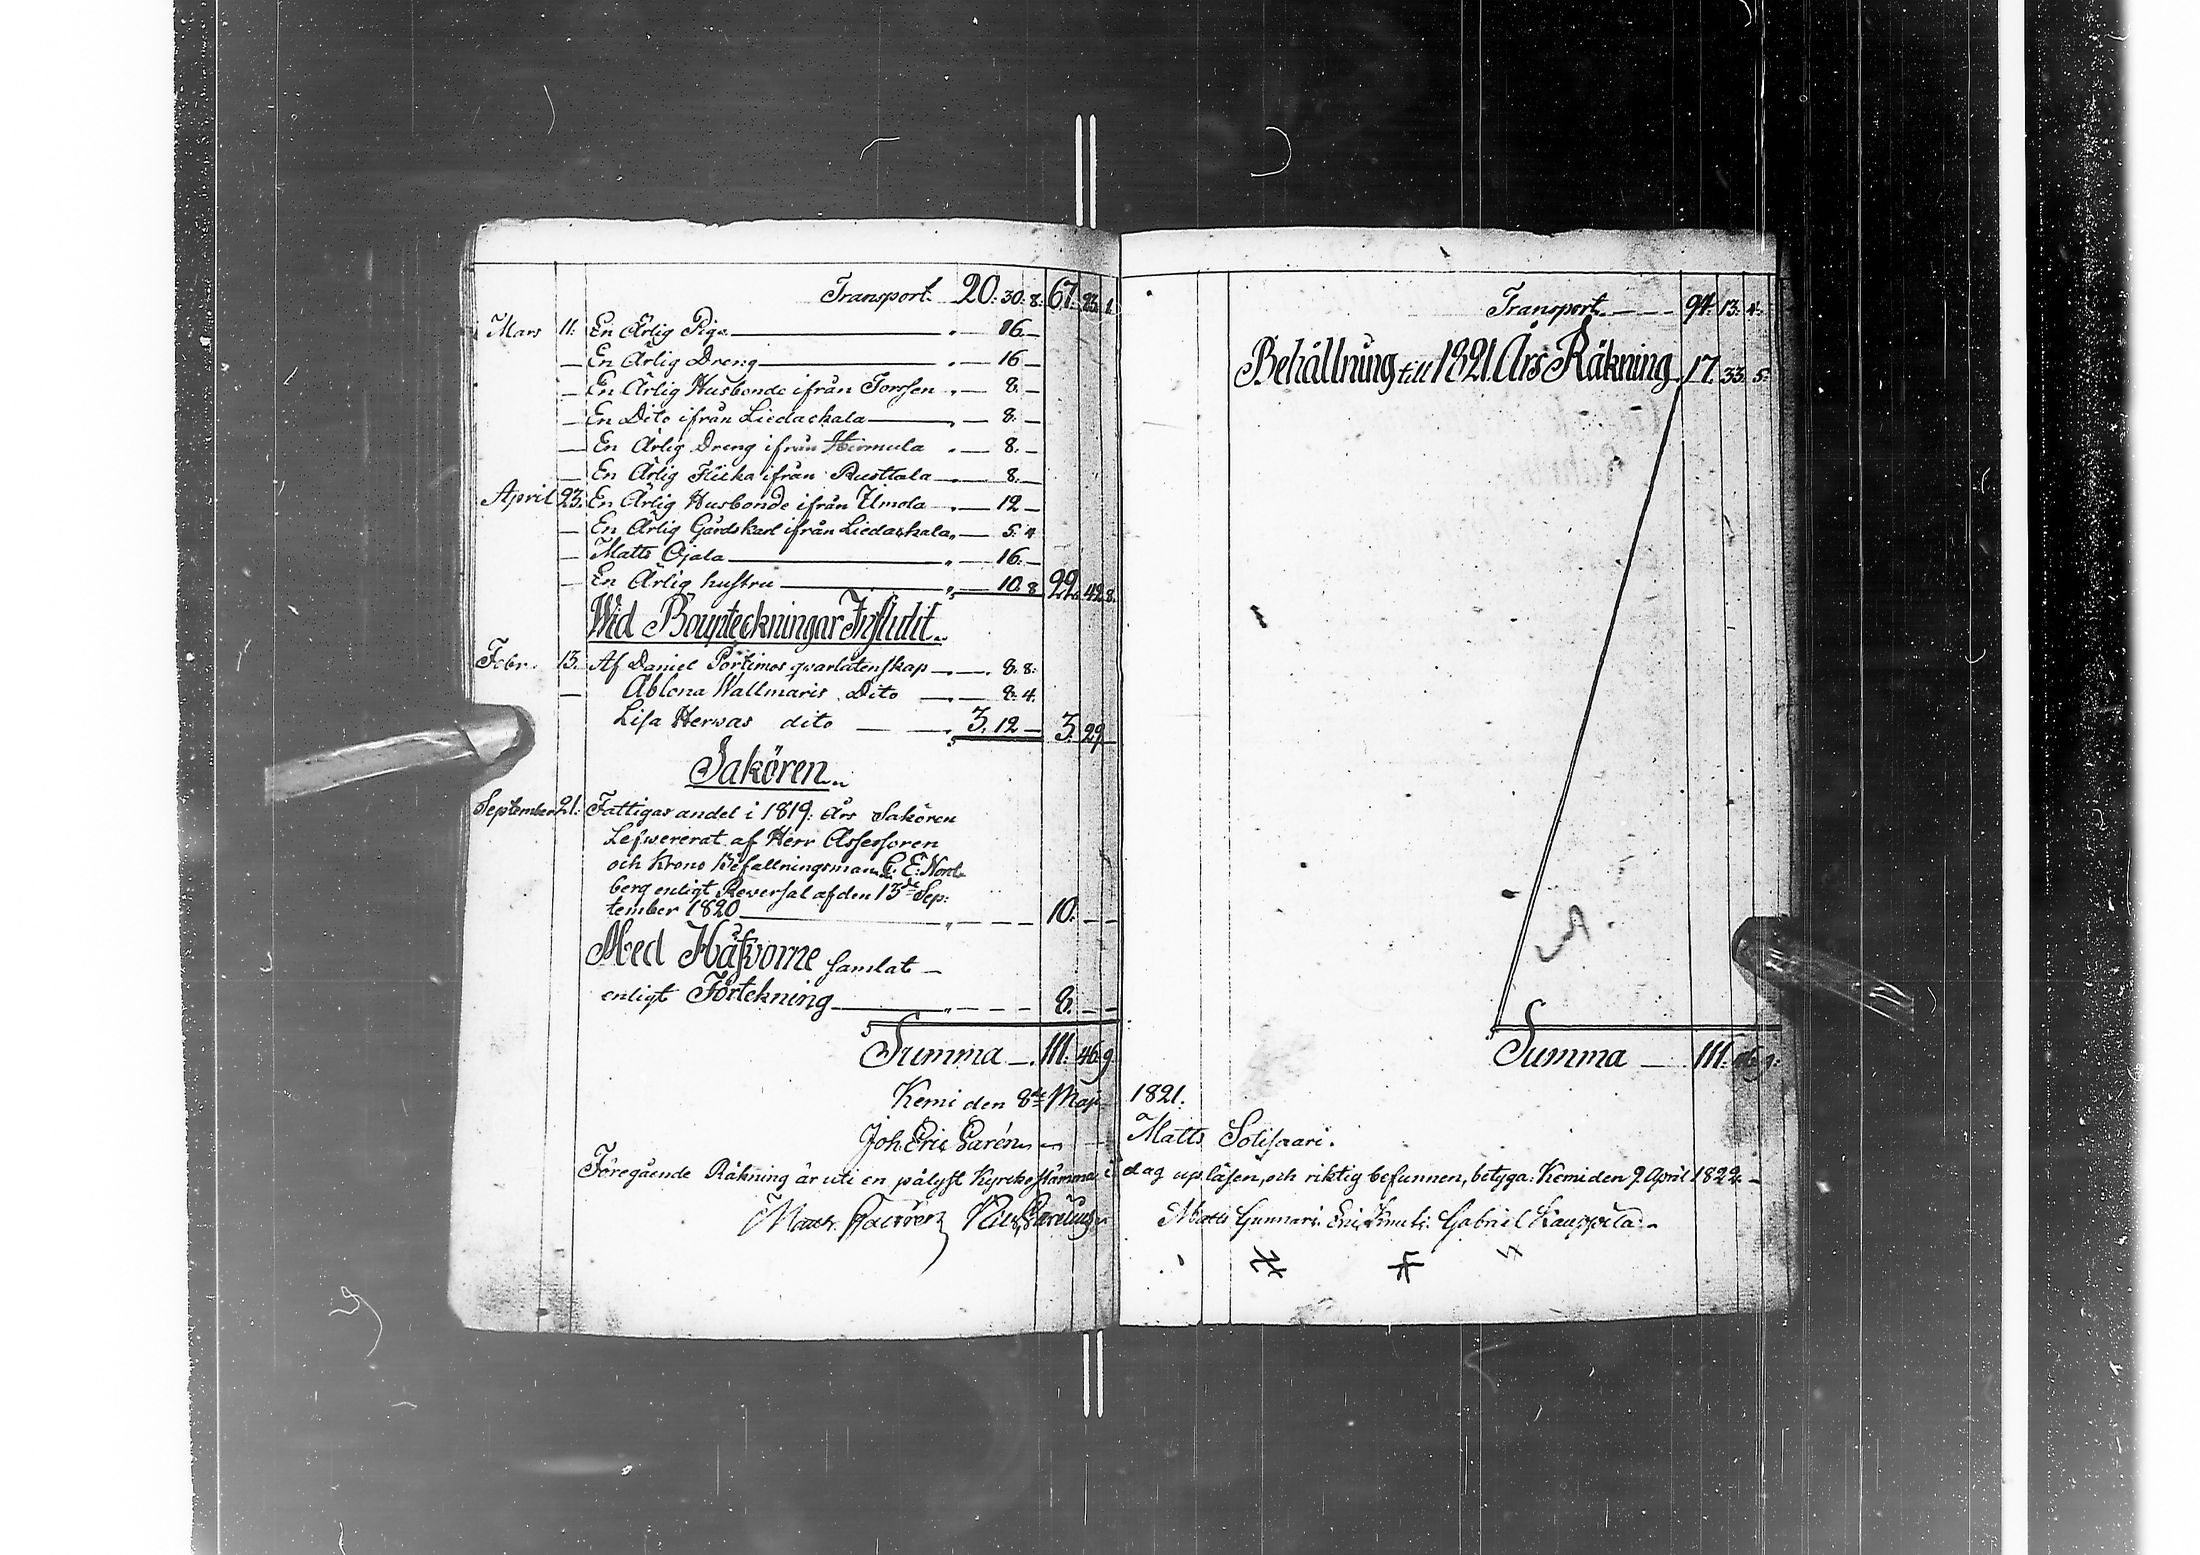 Transport. 20. 30. 8. 67. 23. 1.
Mars 11. En Ärlig Piga 16. —
— En Ärlig Dreng 16 —
— En Ärlig Husbonde ifrån Torssen 8. —
— En Dito ifrån Liedackala 8. —
— En Ärlig Dreng ifrån Hirmula 8. —
— En Ärlig Flicka ifrån Rusttala 8. —
April 23. En Ärlig Husbonde ifrån Ilmola 12 —
— En Ärlig Gårdskarl ifrån Liedackala 5. 4
— Matts Ojala 16. —
— En Ärlig hustru 10. 8 22. 42. 8.
Wid Boupteckningar Influtit.
Febr. 13. Af Daniel Portimos qvarlåtenskap 8. 8.
— Ablona Wallmaris Dito 8. 4.
Lisa Herwas dito 3. 12 — 3. 29
Sakören
September 21. Fattigas andel i 1819: Års Sakören
Lefwererat af Herr Assessoren
och Krono Befallningsman C. E. Nord-
berg enligt Reversal af den 13de Sep-
tember 1820 10. — —
Med Håfvorne samlat —
enligt Förtekning 8. — —
Summa 111. 46. 9
Kemi den 8de Maji
Joh. Eric Parén
Föregående Räkning är uti en pålyst Kyrkostämma i
Transport 94. 13. 4.
Behållning till 1821 Års Räkning 17. 33. 5.
Summa 111. 46. 9.
1821.
Matts Solisaari.
dag upläsen, och riktig befunnen, betyga. Kemi den 7 April 1822. —
Matts Gunnari. Eric Knuti. Gabriel Kauppila. —